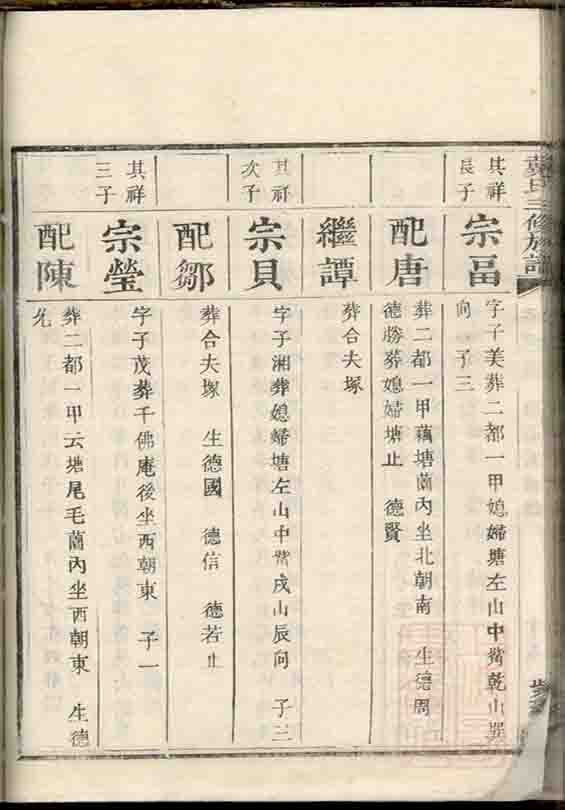 氏三修族譜
其祥
長子
宗畐
字子美葬二都一甲媳婦塘左山中嘴乾山巽
向　子三
配唐
葬二都一甲藕塘薗內坐北朝南　生德周
德勝葬媳婦塘止　德賢
繼譚
葬合夫塚
其祥
次子
宗貝
字子湘葬媳婦塘左山中嘴戌山辰向　子三
配鄒
葬合夫塚　生德國　德信　德若止
其祥
三子
宗瑩
字子茂葬千佛庵後坐西朝東　子一
配陳
葬二都一甲云塘尾毛薗內坐西朝東　生德
允